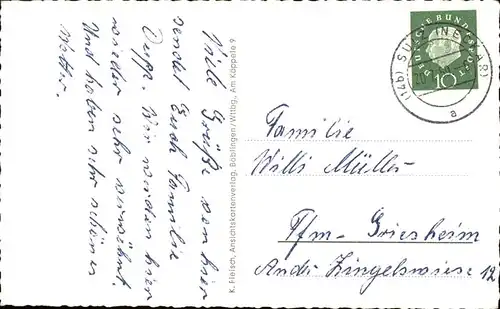 Viele Grüße von hier
sendet Euch Familie
Depp. Wir werden hier
wieder sehr verwöhnt.
Und haben sehr schönes
Wetter.
K. Fleisch, Ansichtskartenverlag, Böblingen/Wttbg., Am Käppele 9
DEUTSCHE BUNDESPOST
10
(14b) SULZ (NECKAR)
a
Familie
Willi Müller
Ffm-Griesheim
An der Zingelswiese 12